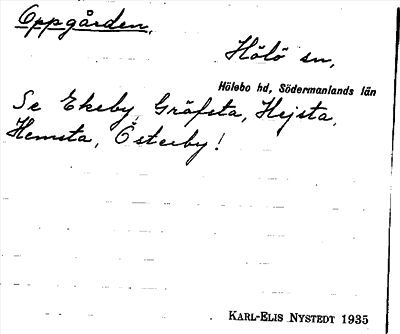 Oppgården,
Hölö sn,
Hölebo hd, Södermanlands län
Se Ekeby, Gräfsta, Hejsta,
Hemsta, Österby!
KARL-ELIS NYSTEDT 1935